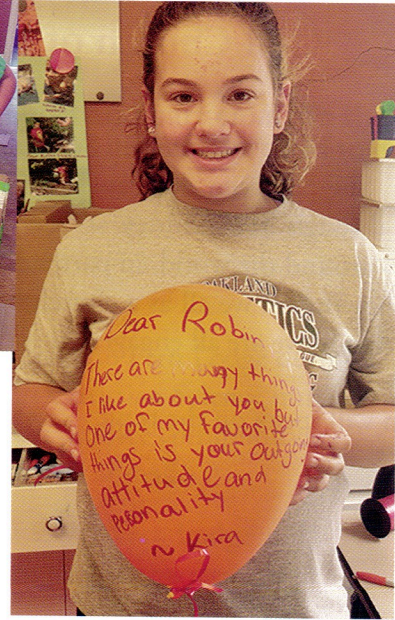 Dear Robin
There are many things
I like about you but
One of my favorite
things is your outgoing
attitude and
personality
~ Kira
OAKLAND